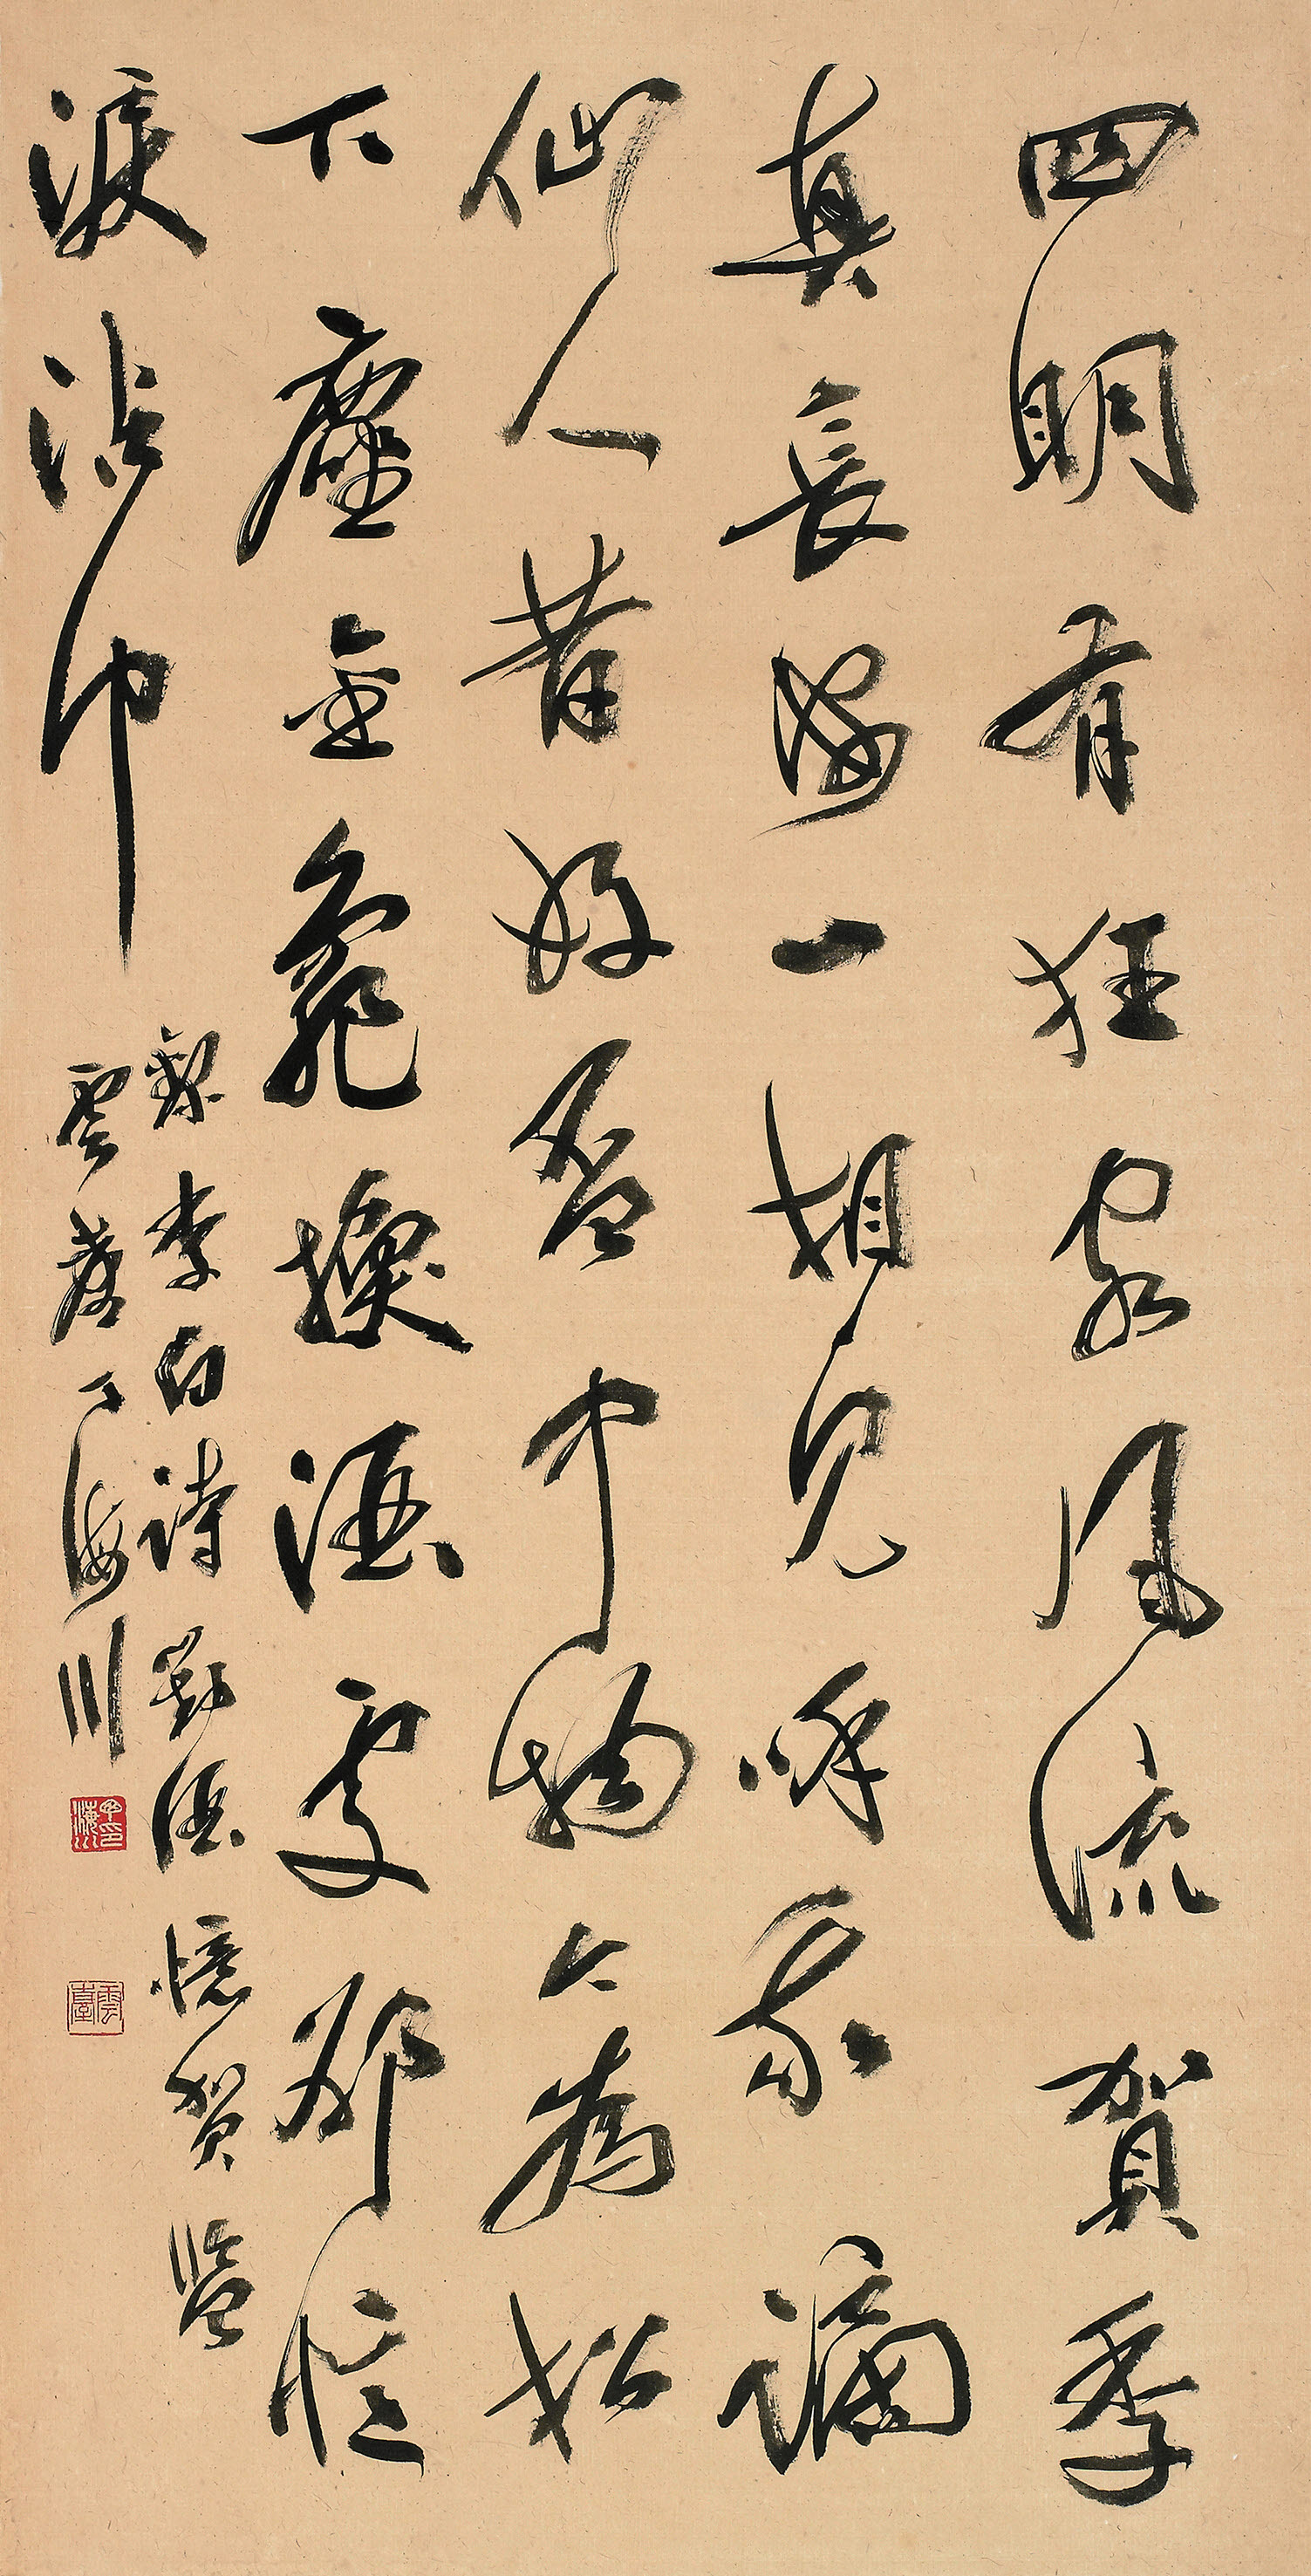 四明有狂客風流賀季
真長安一相見呼我謫
仙人昔好盃中物今為松
下塵金龜換酒處卻憶
淚沾巾
錄李白詩對酒憶賀監
雲臺丁海川
雲臺